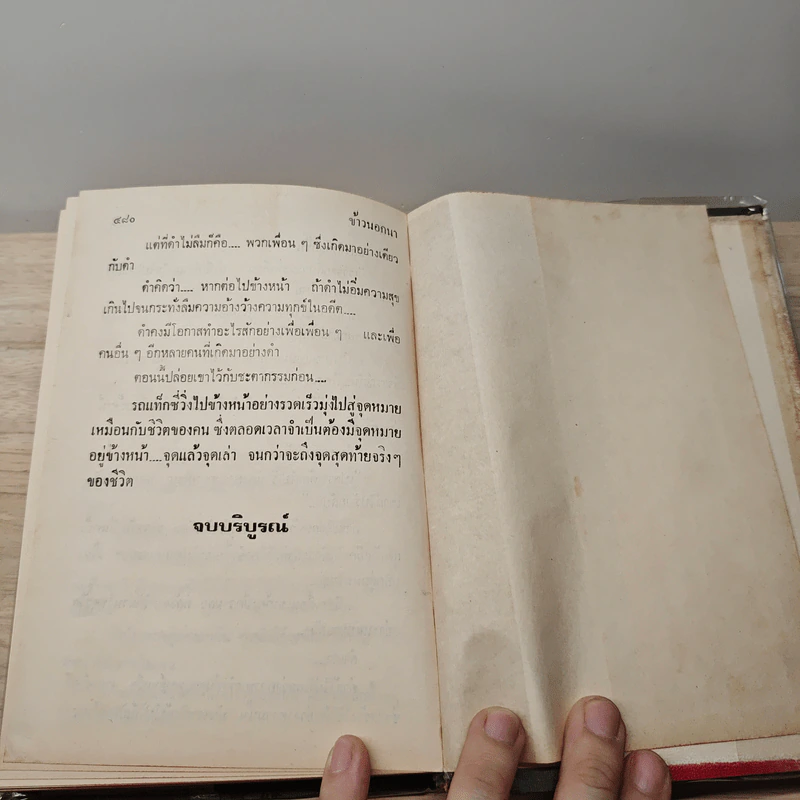 ๔๘๐ ข้าวนอกนา
แต่ที่ดำไม่ลืมก็คือ.... พวกเพื่อน ๆ ซึ่งเกิดมาอย่างเดียว
กับดำ
ดำคิดว่า.... หากต่อไปข้างหน้า ถ้าดำไม่อิ่มความสุข
เกินไปจนกระทั่งลืมความอ้างว้างความทุกข์ในอดีต....
ดำคงมีโอกาสทำอะไรสักอย่างเพื่อเพื่อน ๆ และเพื่อ
คนอื่น ๆ อีกหลายคนที่เกิดมาอย่างดำ
ตอนนี้ปล่อยเขาไว้กับชะตากรรมก่อน....
รถแท็กซี่วิ่งไปข้างหน้าอย่างรวดเร็วมุ่งไปสู่จุดหมาย
เหมือนกับชีวิตของคน ซึ่งตลอดเวลาจำเป็นต้องมีจุดหมาย
อยู่ข้างหน้า....จุดแล้วจุดเล่า จนกว่าจะถึงจุดสุดท้ายจริงๆ
ของชีวิต
จบบริบูรณ์